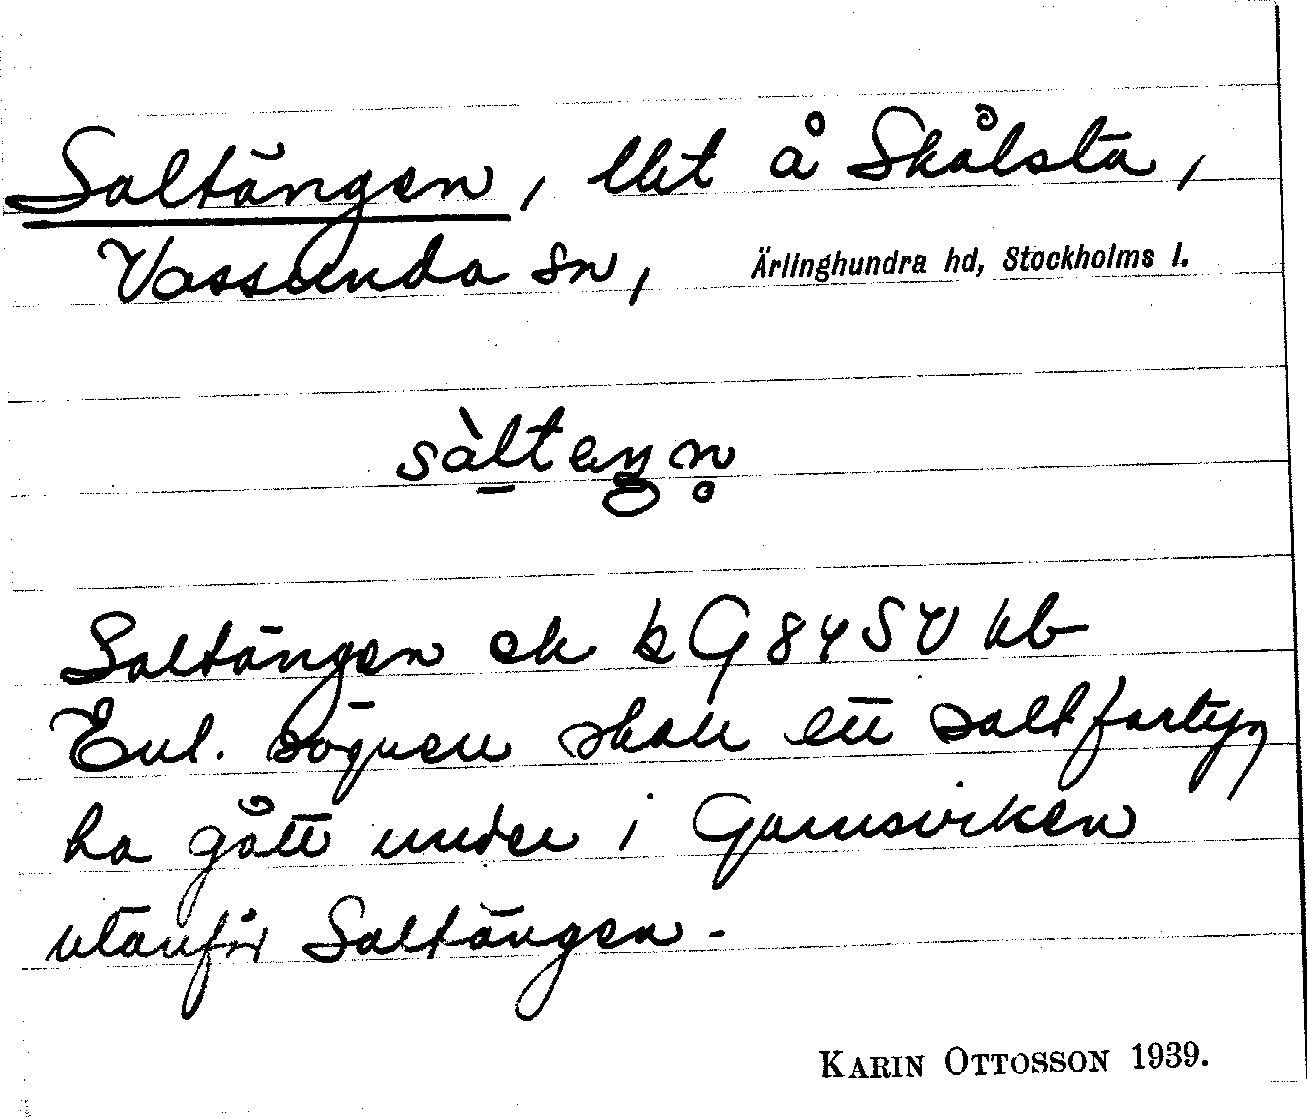 Saltängen, lht å Skålsta,
Vassunda sn, Ärlinghundra hd, Stockholms l.
sàlteŋn̥
Saltängen ek G 84 SV
Enl. sägnen skall ett saltfartyg
ha gått under i Garnsviken
utanför Saltängen.
KARIN OTTOSSON 1939.